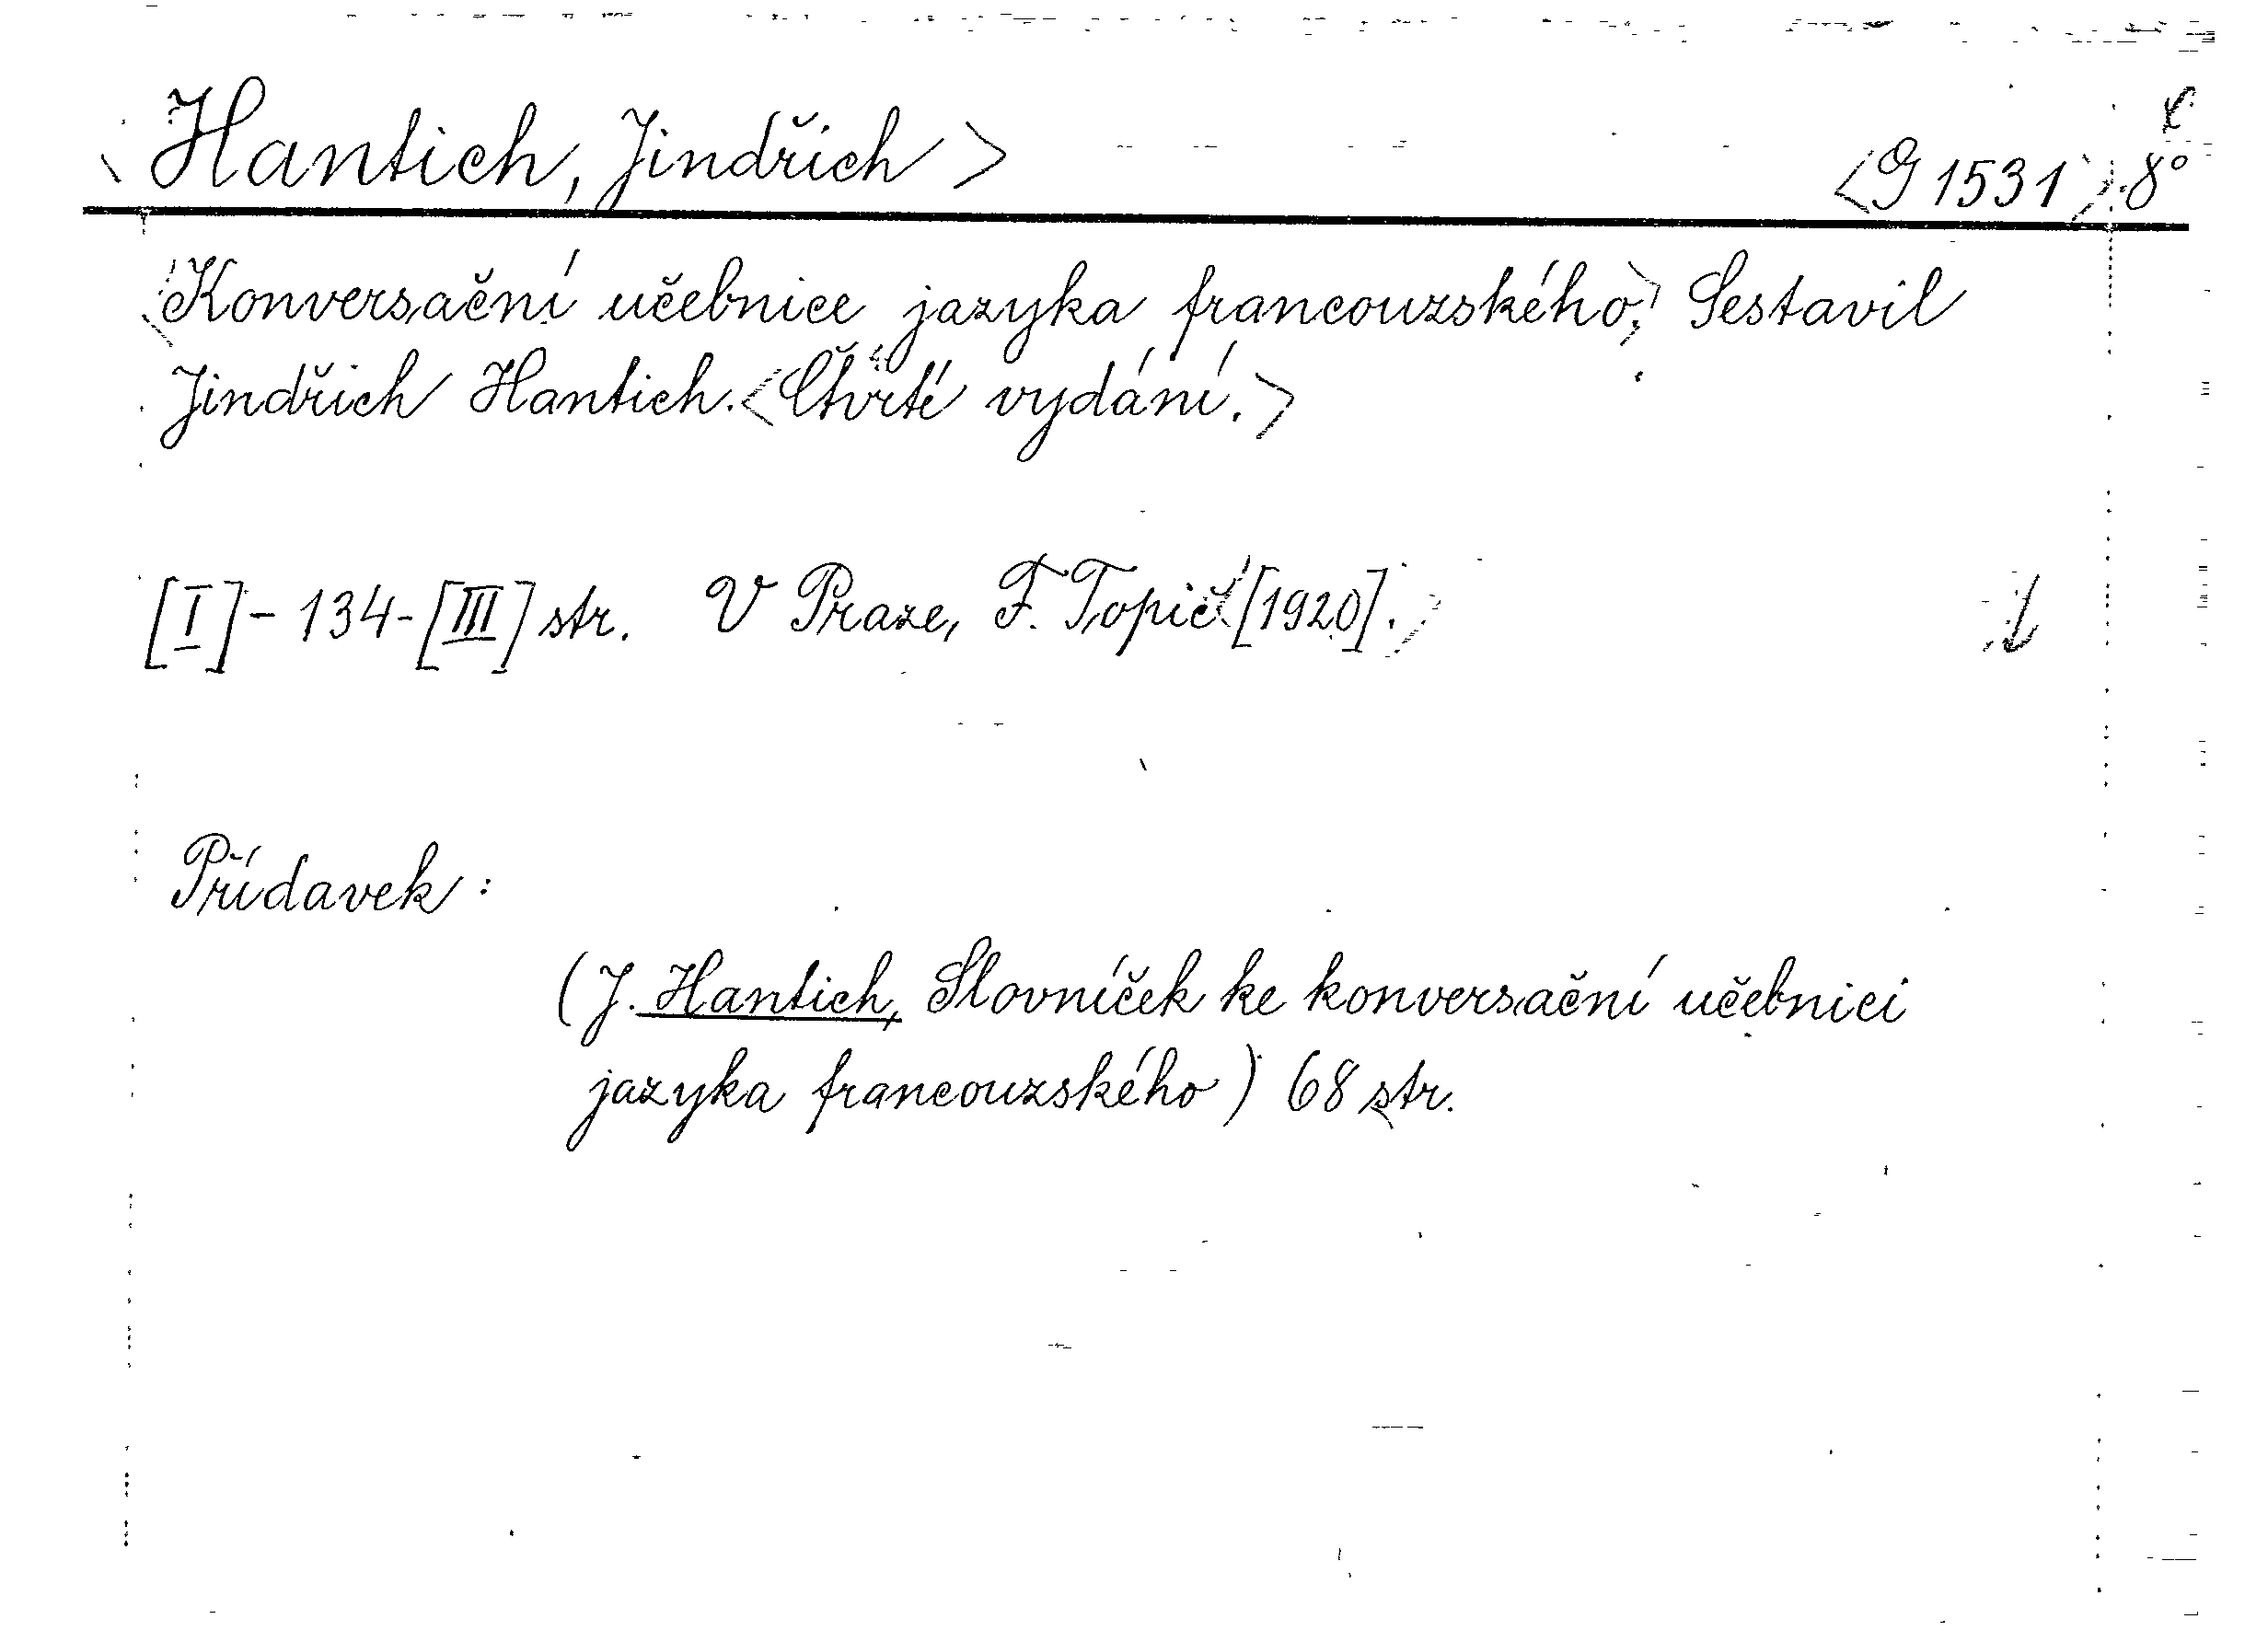 <Hantich, Jindřich> <G 1531> 8°
<Konversační učebnice jazyka francouzského.> Sestavil
Jindřich Hantich. <Čtvrté vydání.>
[I]-134-[III] str. V Praze, F. Topič <[1920].>
Přídavek:
(J. Hantich, Slovníček ke konversační učebnici
jazyka francouzského) 68 str.